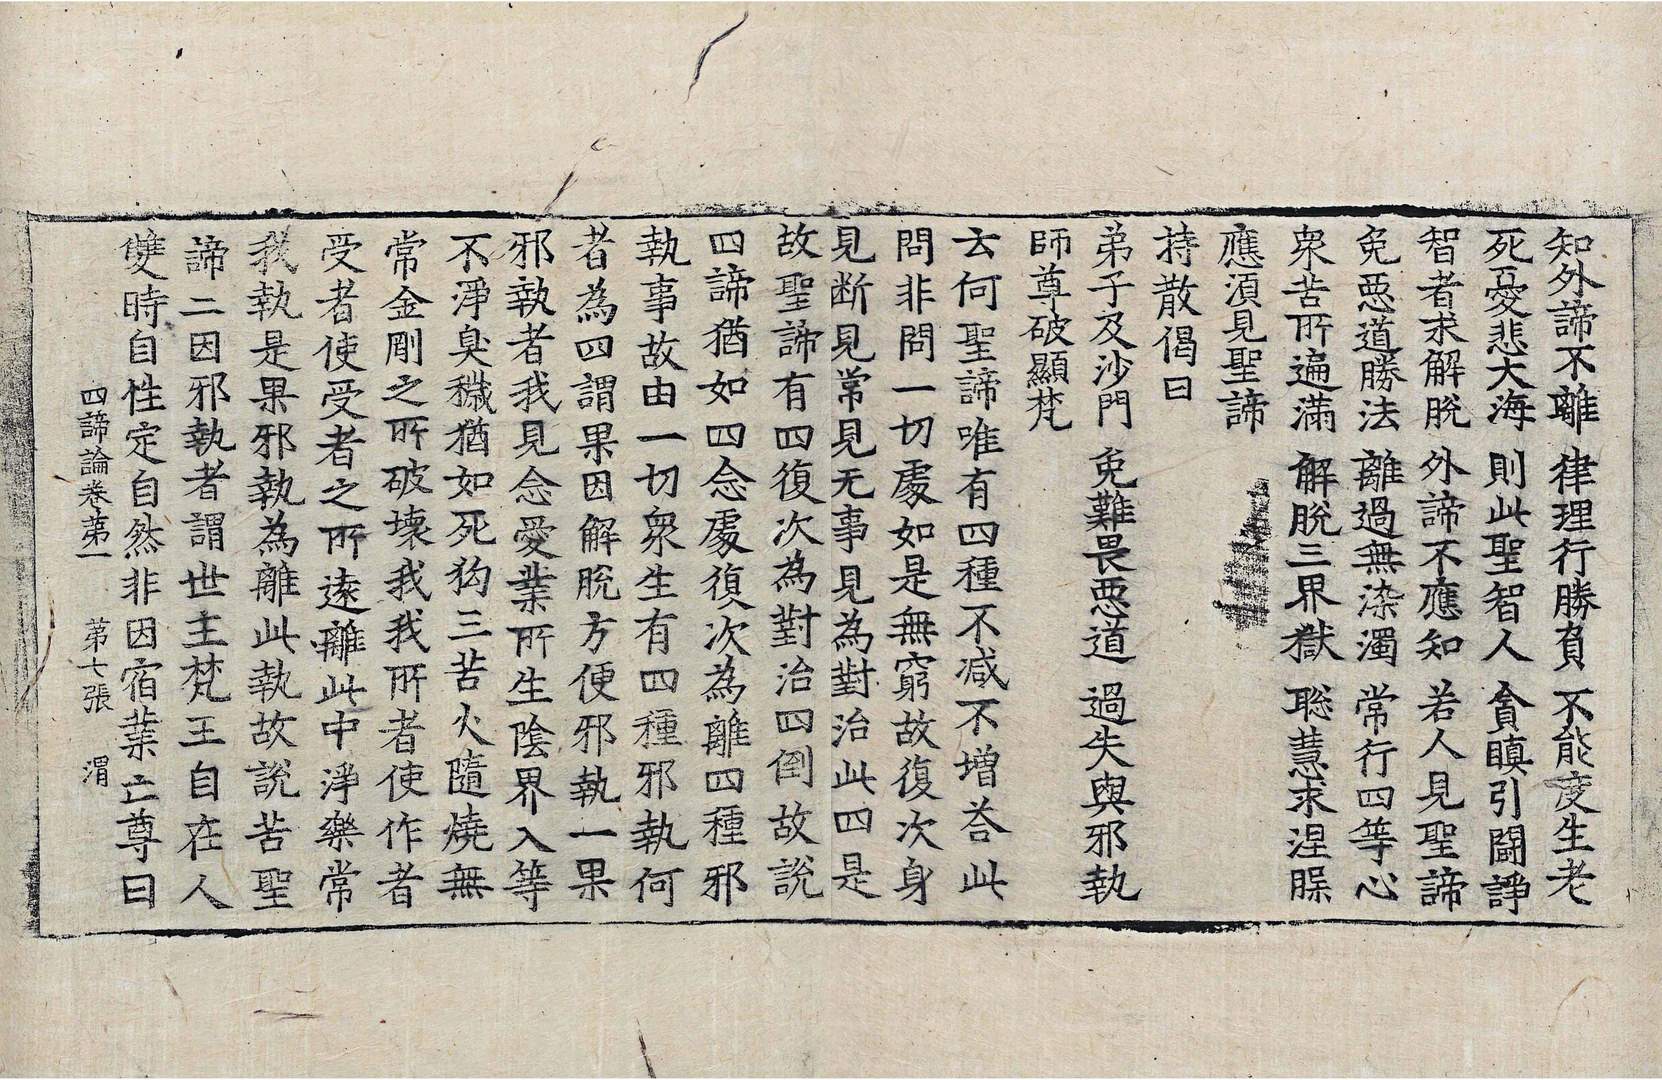 知外諦不離　律理行勝負　不能度生老
死憂悲大海　則此聖智人　貪瞋引鬪諍
智者求解脫　外諦不應知　若人見聖諦
免惡道勝法　離過無染濁　常行四等心
衆苦所遍滿　解脫三界獄　聡慧求涅槃
應湏見聖諦
持散偈曰
弟子及沙門　免難畏惡道　過失與邪執
師尊破顯梵
云何聖諦唯有四種不减不增荅此
問非問一切處如是無窮故復次身
見断見常見无事見為對治此四是
故聖諦有四復次為對治四倒故說
四諦猶如四念處復次為離四種邪
執事故由一切衆生有四種邪執何
者為四謂果因解脫方便邪執一果
邪執者我見念愛業所生陰界入等
不淨臭穢猶如死狗三苦火隨燒無
常金剛之所破壞我我所者使作者
受者使受者之所遠離此中淨樂常
我執是果邪執為離此執故說苦聖
諦二因邪執者謂世主梵王自在人
雙時自性定自然非因宿業亡尊曰
四諦論卷第一　第七張　渭